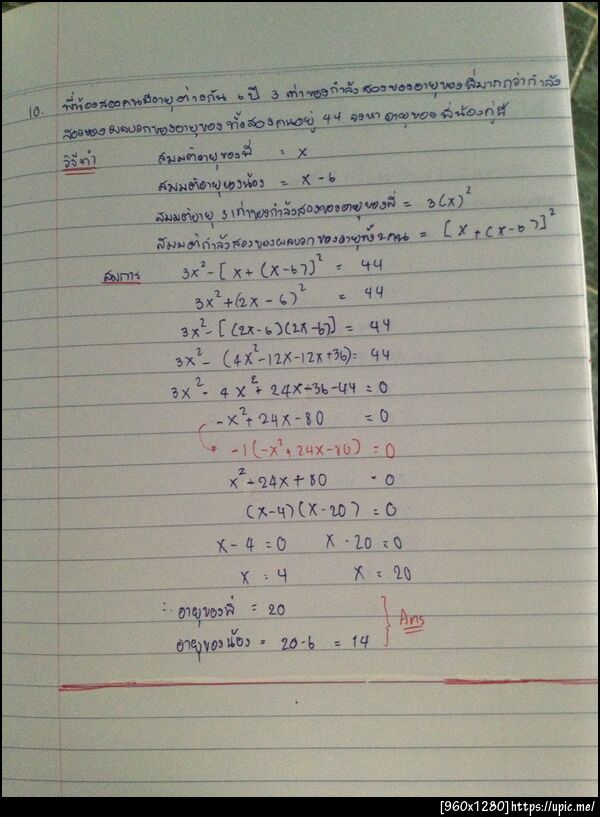 10. พี่น้องสองคนมีอายุต่างกัน 6 ปี 3 เท่าของกำลังสองของอายุของพี่มากกว่ากำลัง
สองของผลบวกของอายุของทั้งสองคนอยู่ 44 จงหาอายุของพี่น้องคู่นี้
วิธีทำ สมมติอายุของพี่ = x
สมมติอายุของน้อง = x - 6
สมมติอายุ 3 เท่าของกำลังสองของอายุของพี่ = 3(x)²
สมมติกำลังสองของผลบวกของอายุทั้ง 2 คน = [x + (x-6)]²
สมการ 3x² - [x + (x-6)]² = 44
3x² + (2x - 6)² = 44
3x² - [(2x-6)(2x-6)] = 44
3x² - (4x² - 12x - 12x + 36) = 44
3x² - 4x² + 24x - 36 - 44 = 0
-x² + 24x - 80 = 0
-1(-x² + 24x - 80) = 0
x² - 24x + 80 = 0
(x-4)(x-20) = 0
x - 4 = 0 x - 20 = 0
x = 4 x = 20
∴ อายุของพี่ = 20
อายุของน้อง = 20-6 = 14 Ans
[960x1280]https://upic.me/